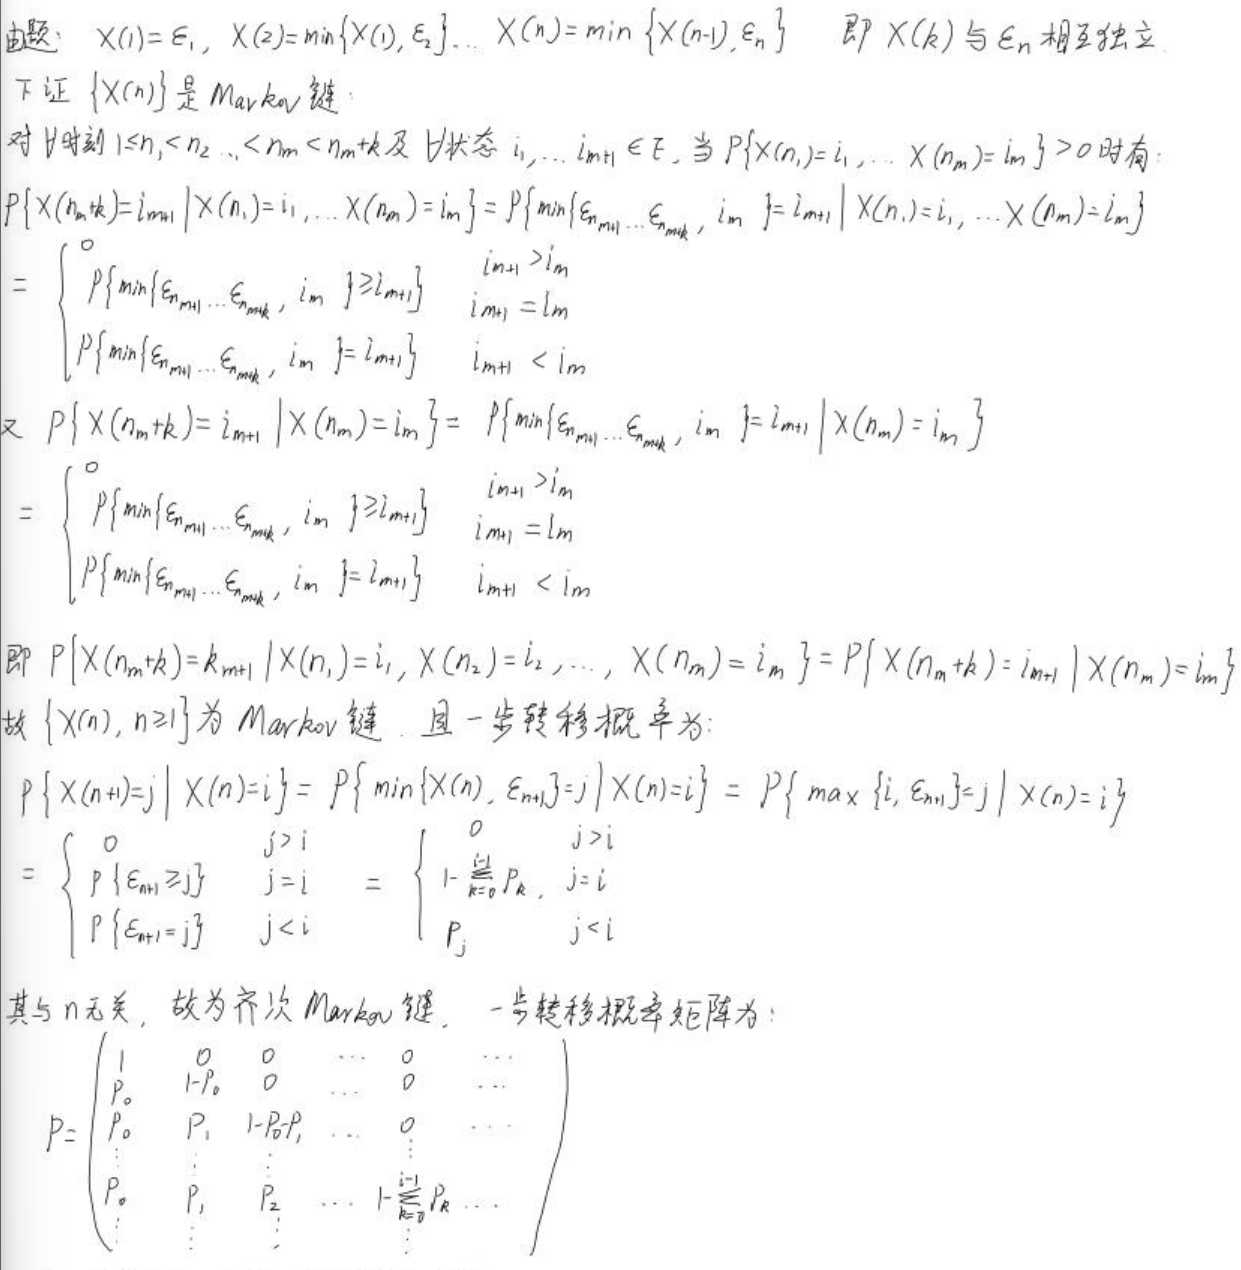 由题: X(1)=ε₁, X(2)=min{X(1),ε₂}... X(n)=min{X(n-1),εₙ} 即 X(k)与εₙ相互独立.
下证 {X(n)}是Markov链:
对∀时刻1≤n₁<n₂...<n_m<n_m+k及∀状态 i₁,...i_{m+1}∈E,当P{X(n₁)=i₁,...X(n_m)=i_m}>0时有:
P{X(n_m+k)=i_{m+1}|X(n₁)=i₁,...X(n_m)=i_m}=P{min{ε_{n_{m+1}}...ε_{n_{m+k}}, i_m}=i_{m+1}|X(n₁)=i₁,...X(n_m)=i_m}
= { 0 i_{m+1}>i_m
P{min{ε_{n_{m+1}}...ε_{n_{m+k}}, i_m}≥i_{m+1}} i_{m+1}=i_m
P{min{ε_{n_{m+1}}...ε_{n_{m+k}}, i_m}=i_{m+1}} i_{m+1}<i_m
又 P{X(n_m+k)=i_{m+1}|X(n_m)=i_m}= P{min{ε_{n_{m+1}}...ε_{n_{m+k}}, i_m}=i_{m+1}|X(n_m)=i_m}
= { 0 i_{m+1}>i_m
P{min{ε_{n_{m+1}}...ε_{n_{m+k}}, i_m}≥i_{m+1}} i_{m+1}=i_m
P{min{ε_{n_{m+1}}...ε_{n_{m+k}}, i_m}=i_{m+1}} i_{m+1}<i_m
即 P{X(n_m+k)=k_{m+1}|X(n₁)=i₁,X(n₂)=i₂,..., X(n_m)=i_m}=P{X(n_m+k)=i_{m+1}|X(n_m)=i_m}
故 {X(n),n≥1}为Markov链.且一步转移概率为:
P{X(n+1)=j|X(n)=i}= P{min{X(n),ε_{n+1}}=j|X(n)=i} = P{max{i,ε_{n+1}}=j|X(n)=i}
= { 0 j>i = { 0 j>i
P{ε_{n+1}≥j} j=i 1-∑_{k=0}^{i-1}P_k, j=i
P{ε_{n+1}=j} j<i P_j j<i
其与n无关,故为齐次Markov链, 一步转移概率矩阵为:
1 0 0 ... 0 ...
P₀ 1-P₀ 0 ... 0 ...
P= P₀ P₁ 1-P₀-P₁ ... 0 ...
⋮ ⋮ ⋮ ⋮
P₀ P₁ P₂ ... 1-∑_{k=0}^{i-1}P_k ...
⋮ ⋮ ⋮ ⋮